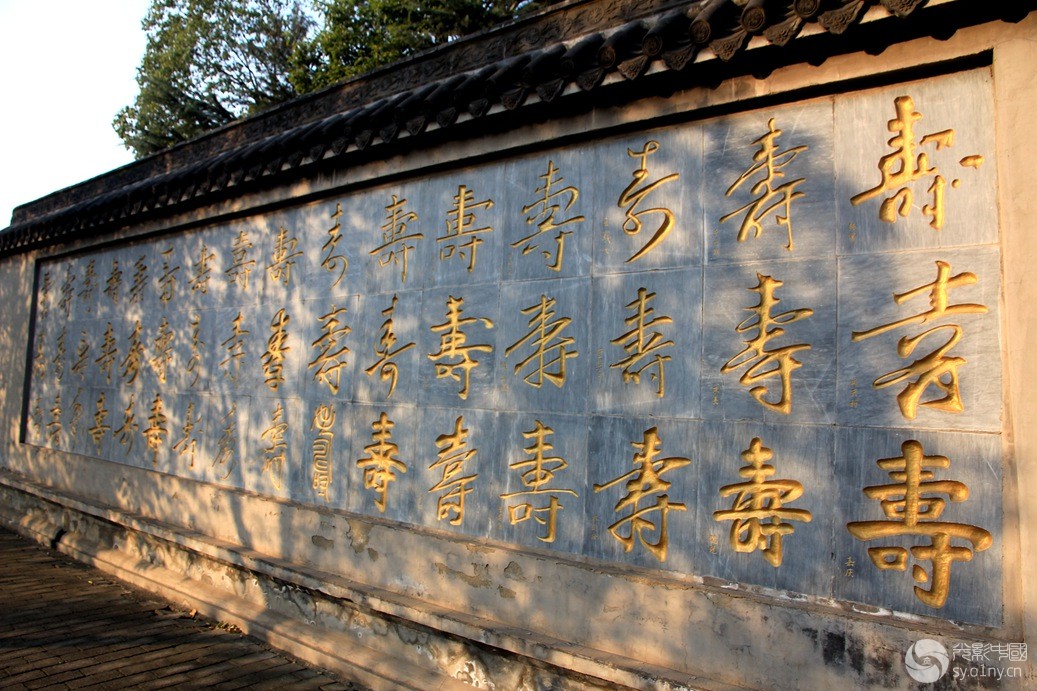 壽壽壽壽壽壽壽壽壽壽壽壽壽壽壽壽
壽壽壽壽壽壽壽壽壽壽壽壽壽壽壽壽
壽壽壽壽壽壽壽壽壽壽壽壽壽壽壽壽
光影中國
sy.o1ny.cn